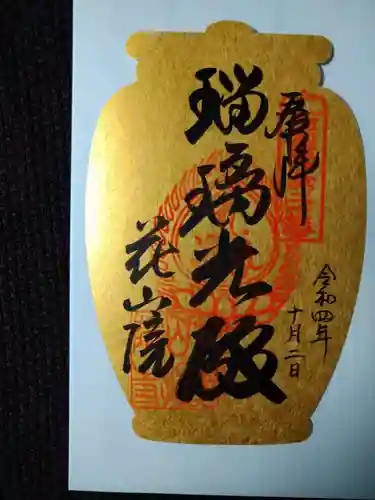 奉拝
瑠璃光殿
花山院
令和四年
十月二日